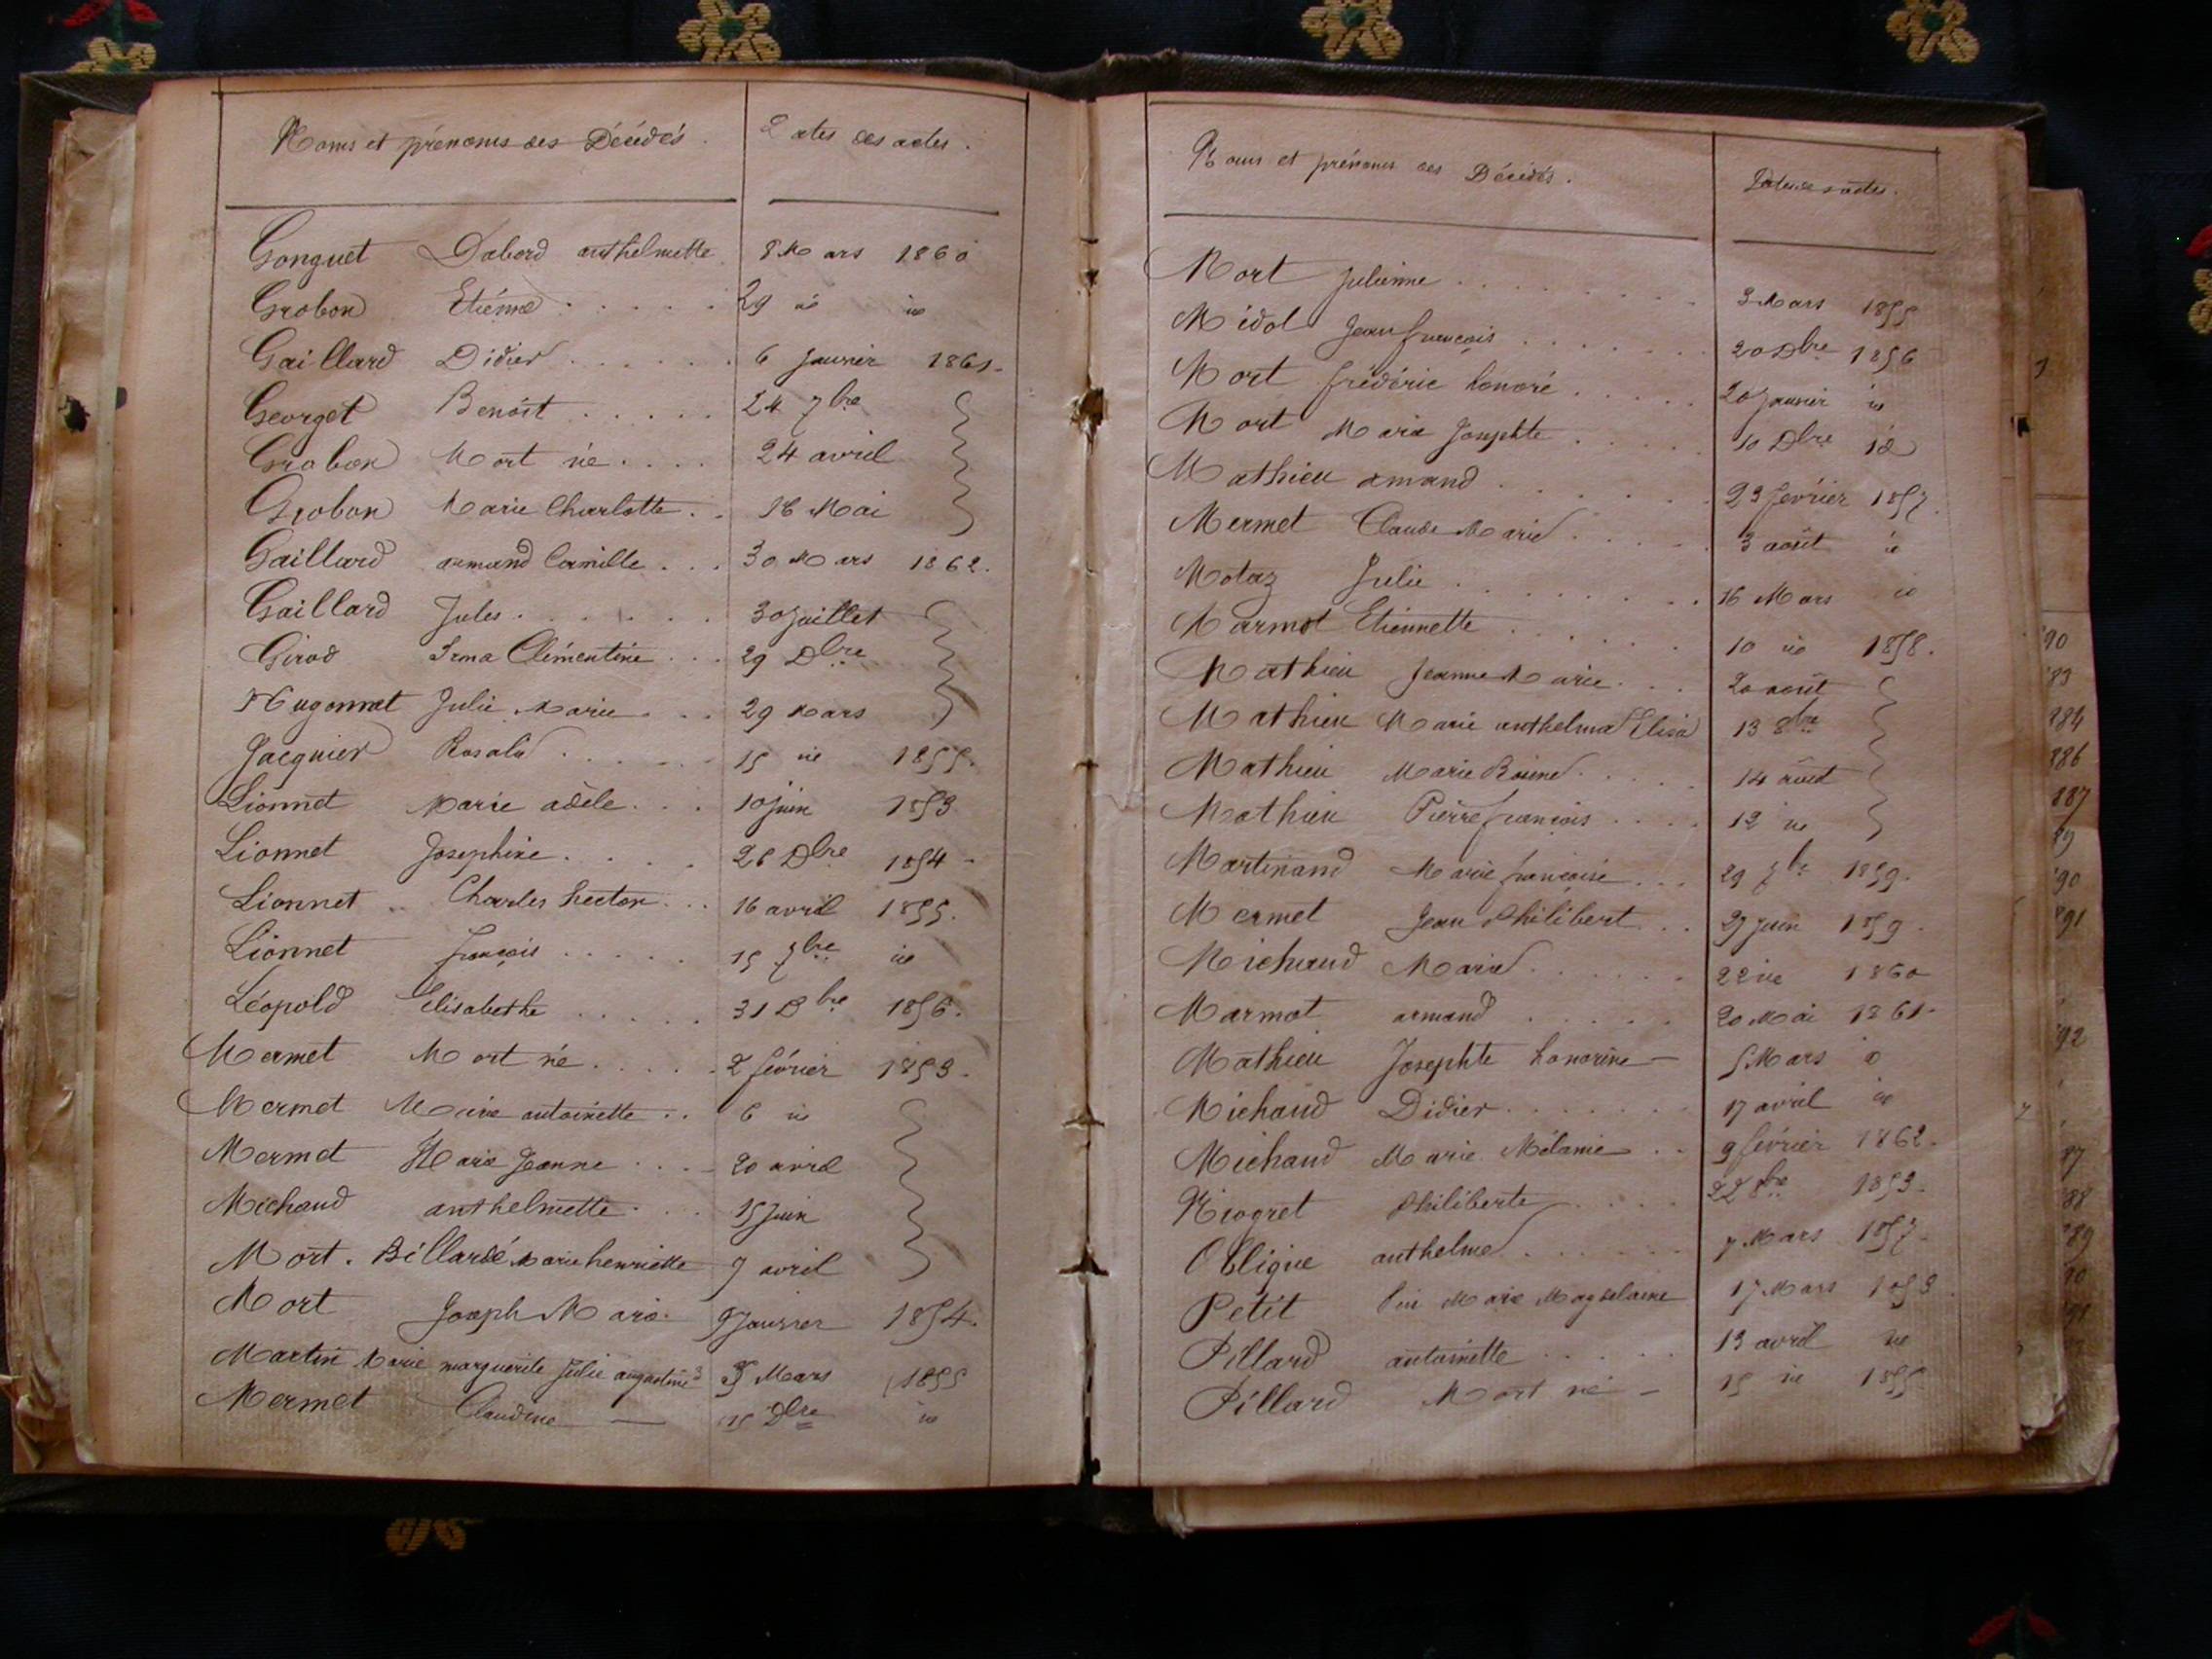 Noms et prénoms des Décédés. Dates des actes.
Gonguet Dabord anthelmette 8 Mars 1860
Grobon Etienne 29 id id
Gaillard Didier 6 Janvier 1861.
Georget Benoit 24 7bre
Grobon Mort né 24 avril
Grobon Marie Charlotte 18 Mai
Gaillard armand Camille 30 Mars 1862.
Gaillard Jules 30 Juillet
Girod Irma Clémentine 29 Dbre
Hugonnet Julie Marie 29 Mars
Jacquier Rosalie 15 id 1855.
Lionnet Marie adèle 10 Juin 1853
Lionnet Josephine 26 Dbre 1854
Lionnet Charles hector 16 avril 1855.
Lionnet françois 15 7bre id
Léopold Elisabethe 31 Dbre 1856.
Mermet Mort né 2 février 1853.
Mermet Marie antoinette 6 id
Mermet Marie Jeanne 20 avril
Michaud anthelmette 15 Juin
Mort. Billardé Marie henriette 7 avril
Mort Joseph Marie 9 Janvier 1854.
Martin Marie marguerite Julie augustine Mars 1855
Mermet Claudine 15 Dbre id
Noms et prénoms des Décédés. Dates des actes.
Mort Julienne 3 Mars 1855
Midol Jean françois 20 Dbre 1856
Mort frédéric honoré 20 Janvier id
Mort Marie Josephte 10 Dbre id
Mathieu amand 23 février 1857.
Mermet Claude Marie 3 août id
Motaz Julie 16 Mars id
Marmot Etiennette 10 id 1858.
Mathieu Jeanne Marie 20 août
Mathieu Marie anthelma Elisa 13 8bre
Mathieu Marie 14 août
Mathieu Pierre françois 12 id
Martinand Marie françoise 29 7bre 1859.
Mermet Jean Philibert 29 Juin 1859.
Michaud Marie 22 id 1860
Marmot armand 20 Mai 1861.
Mathieu Josephte honorine 5 Mars id
Michaud Didier 17 avril id
Michaud Marie Mélanie 9 février 1862.
Niogret Philiberte 22 8bre 1853.
Obligue anthelme 7 Mars 1857.
Petit Marie Magdelaine 17 Mars 1853
Pillard antoinette 13 avril id
Pillard Mort né 15 id 1855